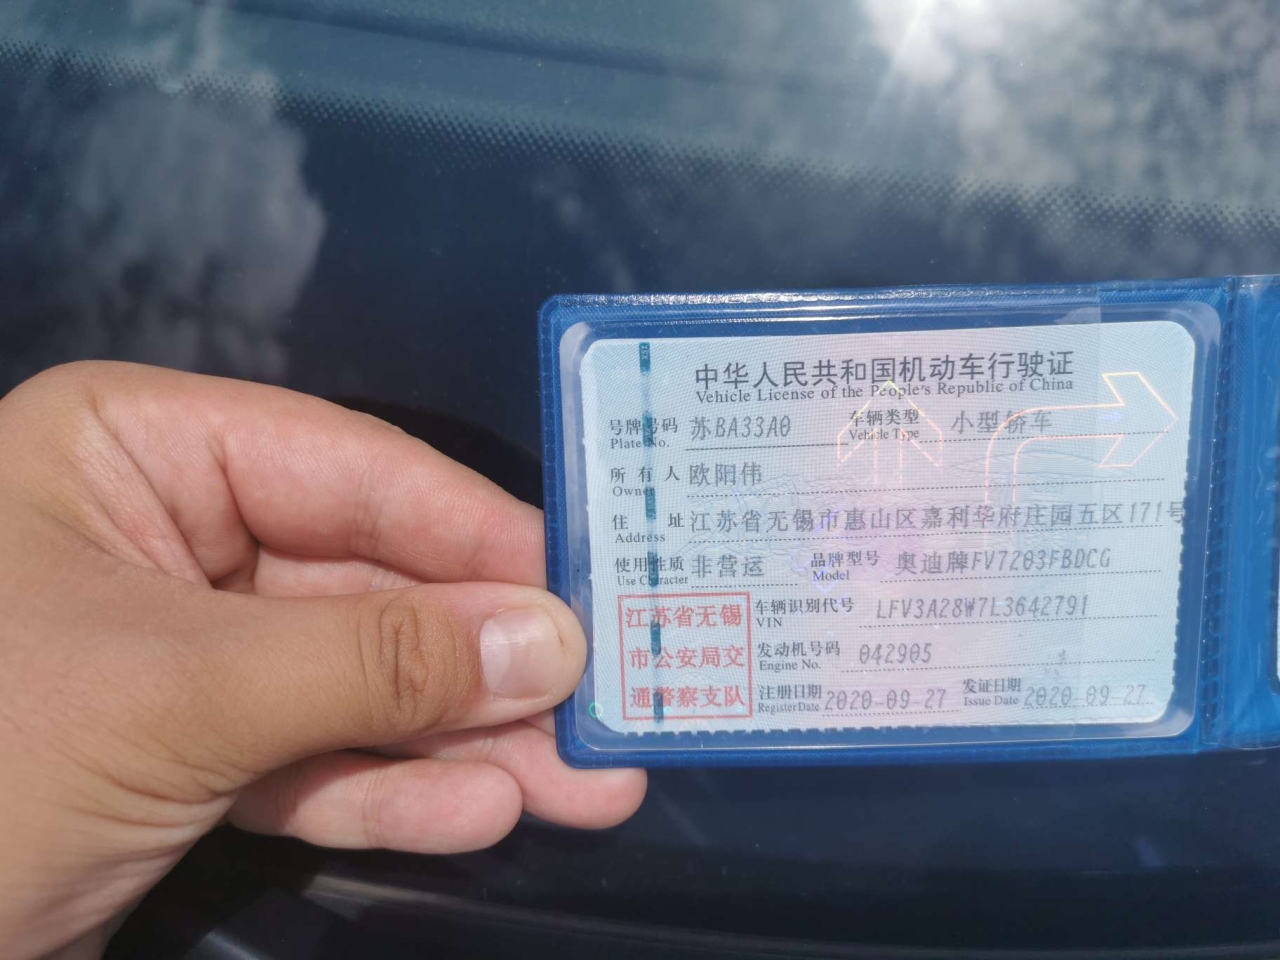 中华人民共和国机动车行驶证
Vehicle License of the People's Republic of China
号牌号码 苏BA33A0 车辆类型 小型轿车
Plate No. Vehicle Type
所有人 欧阳伟
Owner
住址 江苏省无锡市惠山区嘉利华府庄园五区171号
Address
使用性质 非营运 品牌型号 奥迪牌FV7203FBDCG
Use Character Model
江苏省无锡
市公安局交
通警察支队
车辆识别代号 LFV3A28W7L3642791
VIN
发动机号码 042905
Engine No.
注册日期 2020-09-27 发证日期 2020-09-27
Register Date Issue Date